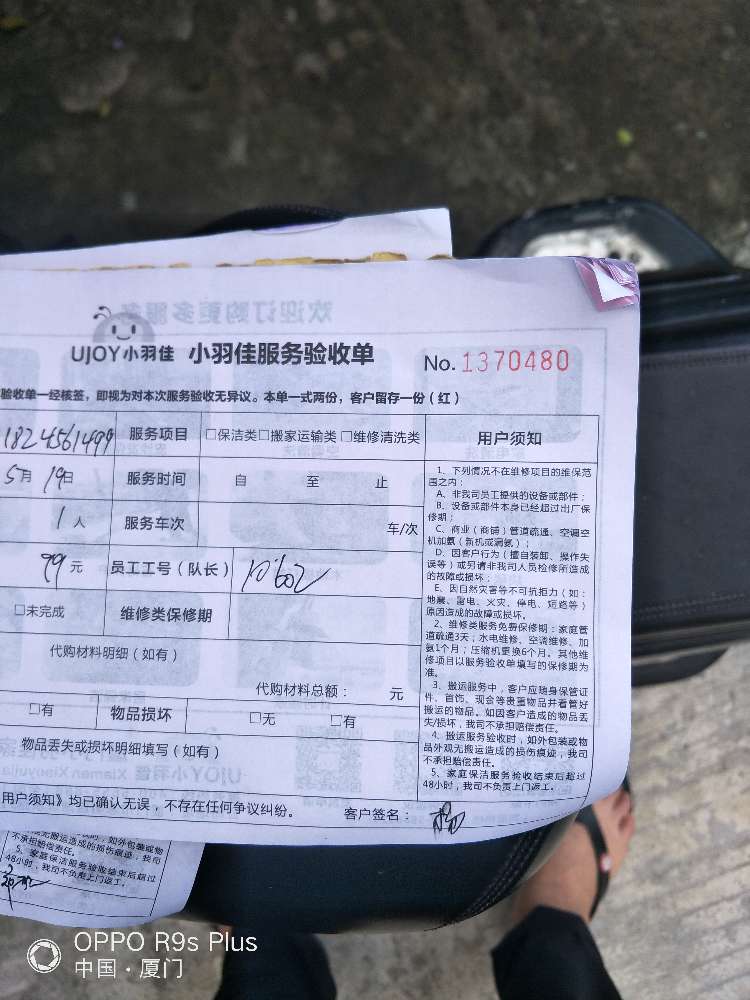 UJOY小羽佳 小羽佳服务验收单 No. 1370480
验收单一经核签，即视为对本次服务验收无异议。本单一式两份，客户留存一份（红）
18245561499 服务项目 □保洁类□搬家运输类□维修清洗类
5月19日 服务时间 自 至 止
1人 服务车次 车/次
99元 员工工号（队长） 10602
□未完成 维修类保修期
代购材料明细（如有）
代购材料总额： 元
□有 物品损坏 □无 □有
物品丢失或损坏明细填写（如有）
用户须知》均已确认无误，不存在任何争议纠纷。 客户签名：
用户须知
1、下列情况不在维修项目的维保范
围之内：
A、非我司员工提供的设备或部件；
B、设备或部件本身已经超过出厂保
修期；
C、商业（商铺）管道疏通、空调空
机加氨（新机或漏氨）；
D、因客户行为（擅自装卸、操作失
误等）或另请非我司人员检修所造成
的故障或损坏；
E、因自然灾害等不可抗拒力（如：
地震、雷电、火灾、停电、短路等）
原因造成的故障或损坏。
2、维修类服务免费保修期：家庭管
道疏通3天；水电维修、空调维修、加
氨1个月；压缩机更换6个月。其他维
修项目以服务验收单填写的保修期为
准。
3、搬运服务中，客户应随身保管证
件、首饰、现金等贵重物品并看管好
搬运的物品。如因客户造成的物品丢
失/损坏，我司不承担赔偿责任。
4、搬运服务验收时，如外包装或物
品外观无搬运造成的损伤痕迹，我司
不承担赔偿责任。
5、家庭保洁服务验收结束后超过
48小时，我司不负责上门返工。
如外包装或物
品外观无搬运造成的损伤痕迹，我司
不承担赔偿责任。
5、家庭保洁服务验收结束后超过
48小时，我司不负责上门返工。
OPPO R9s Plus
中国·厦门